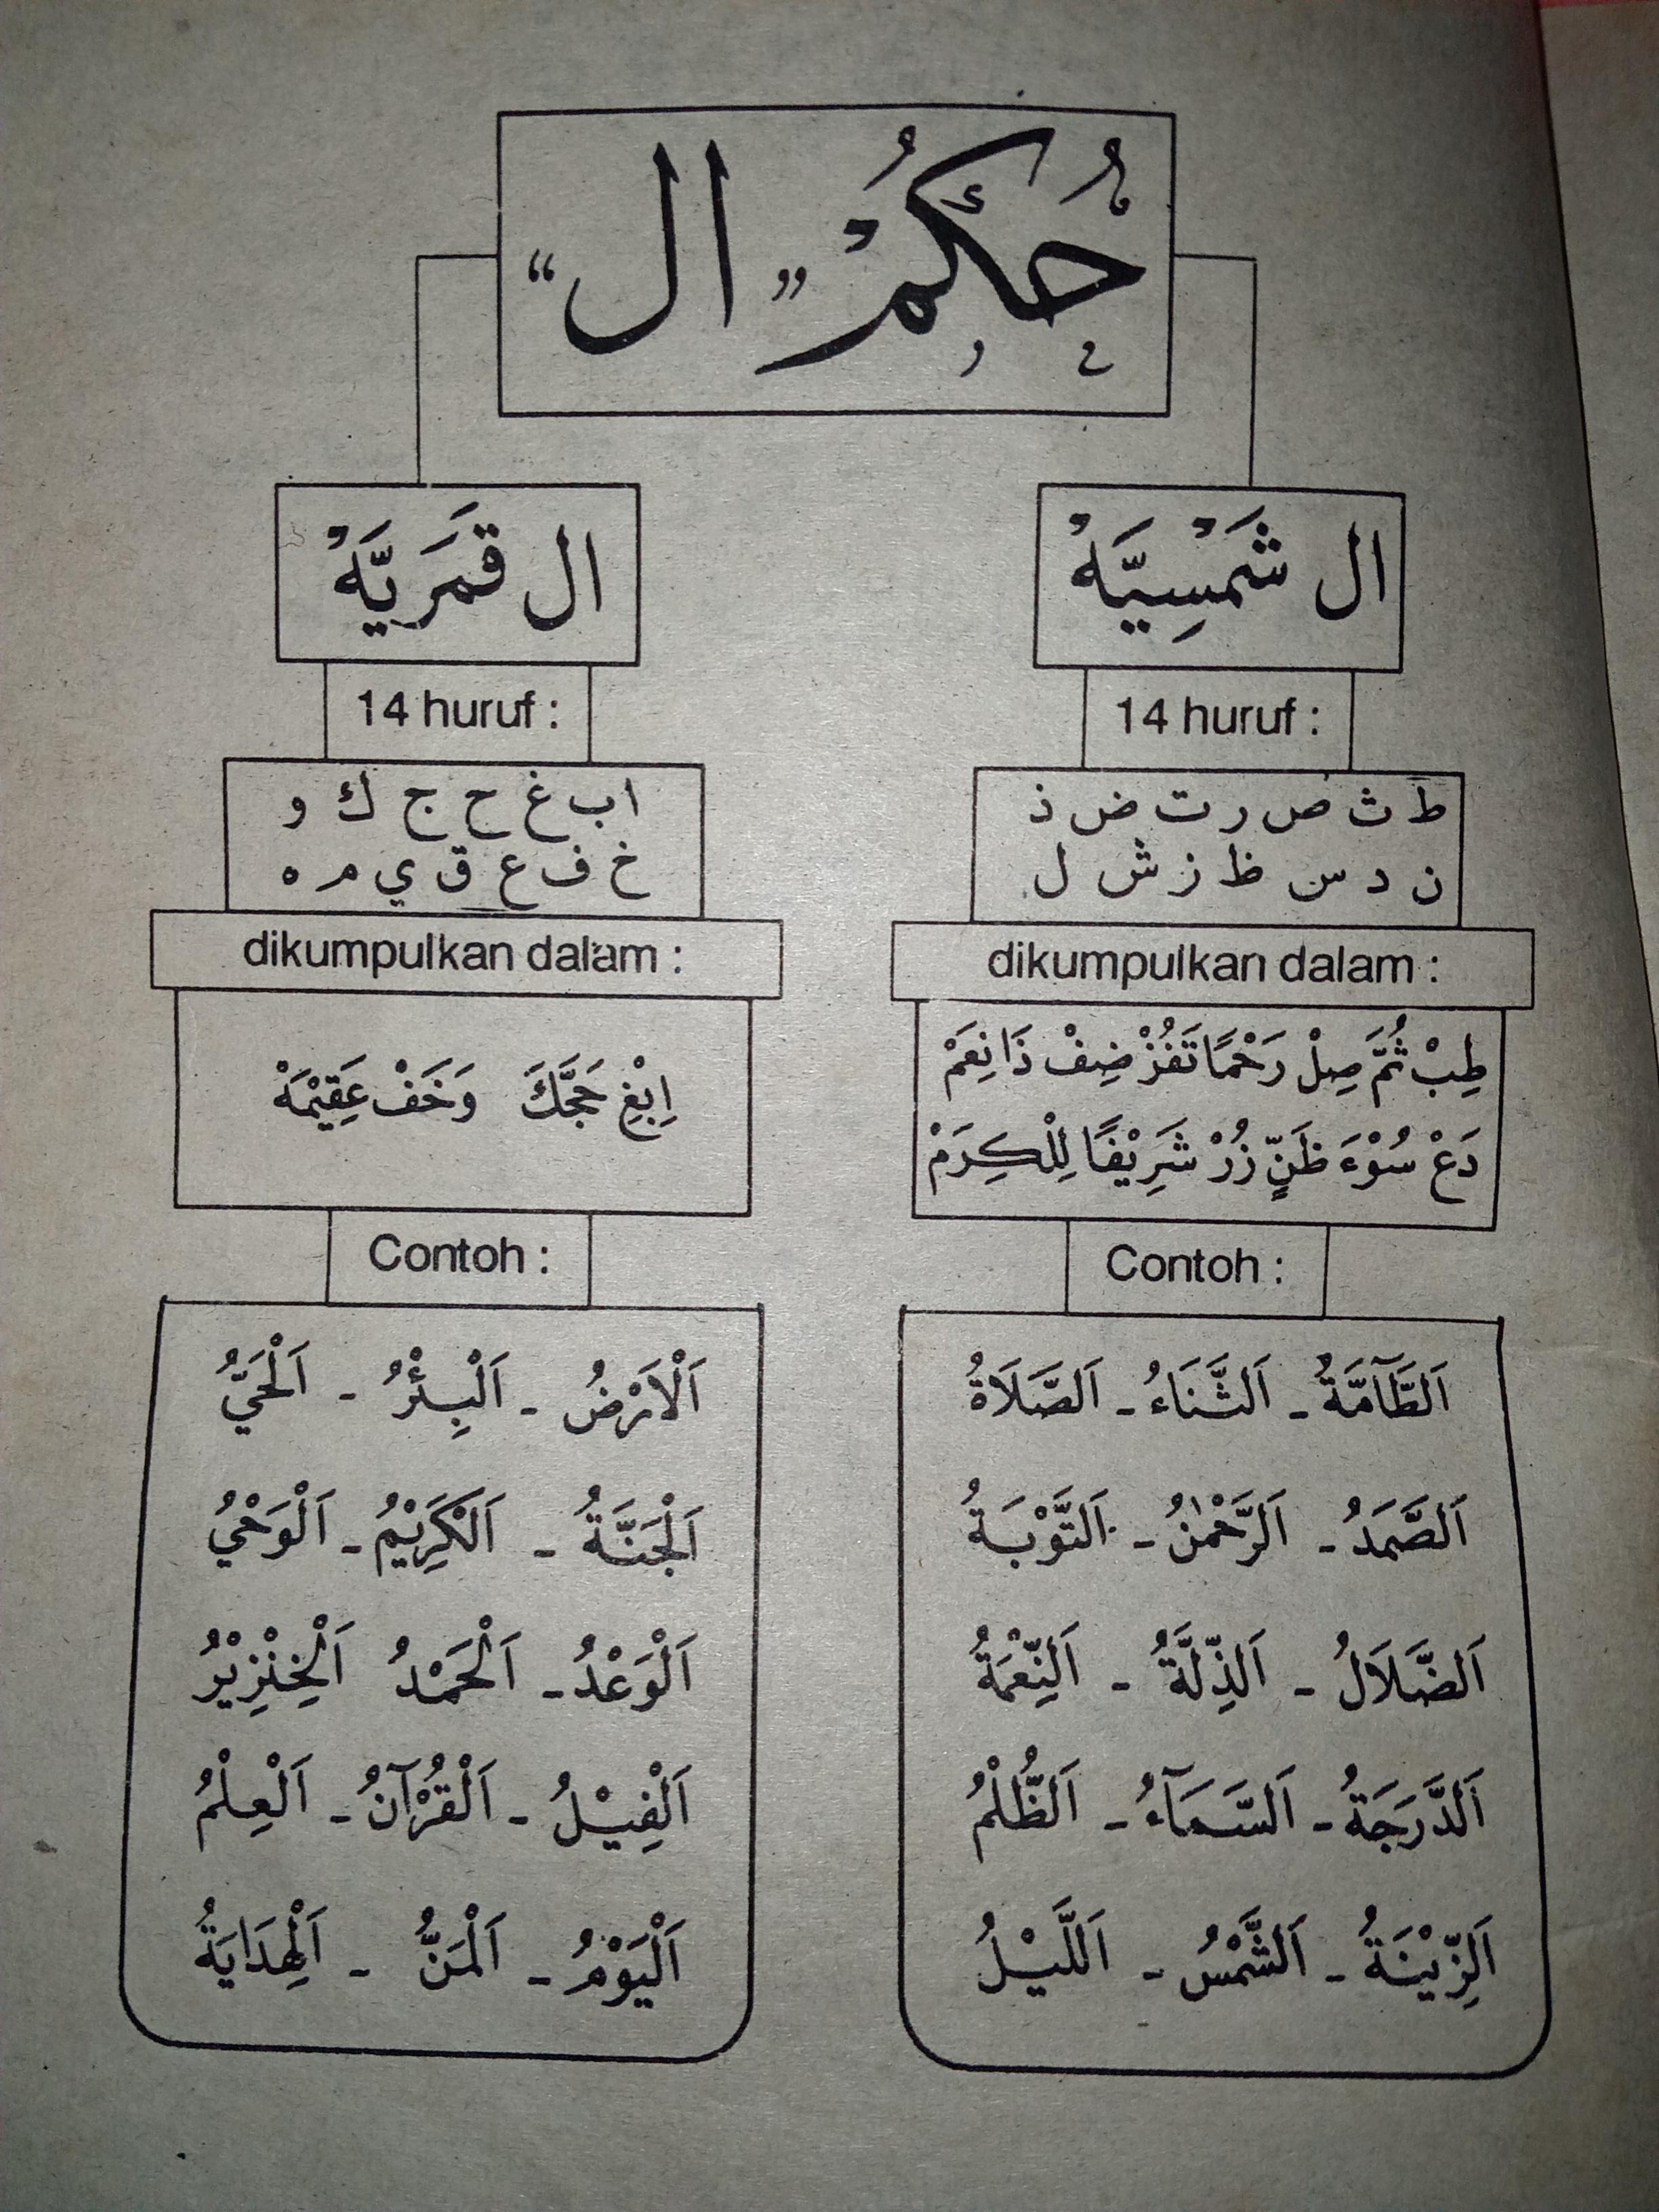 حُكْمُ „ال“
ال شَمْسِيَّهْ
14 huruf :
ط ث ص ر ت ض ذ
ن د س ظ ز ش ل
dikumpulkan dalam :
طِبْ ثُمَّ صِلْ رَحْمًا تَفُزْ ضِفْ ذَا نِعَمْ
دَعْ سُوْءَ ظَنٍّ زُرْ شَرِيْفًا لِلْكَرَمْ
Contoh :
اَلطَّآمَّةُ - اَلثَّنَاءُ - اَلصَّلَاةُ
اَلصَّمَدُ - اَلرَّحْمٰنُ - اَلتَّوْبَةُ
اَلضَّلَالُ - اَلذِّلَّةُ - اَلنِّعْمَةُ
اَلدَّرَجَةُ - اَلسَّمَآءُ - اَلظُّلْمُ
اَلزِّيْنَةُ - اَلشَّمْسُ - اَللَّيْلُ
ال قَمَرِيَّهْ
14 huruf :
ا ب غ ح ج ك و
خ ف ع ق ي م ه
dikumpulkan dalam :
اِبْغِ حَجَّكَ وَخَفْ عَقِيْمَهْ
Contoh :
اَلْاَرْضُ - اَلْبِئْرُ - اَلْحَيُّ
اَلْجَنَّةُ - اَلْكَرِيْمُ - اَلْوَحْيُ
اَلْوَعْدُ - اَلْحَمْدُ اَلْخِنْزِيْرُ
اَلْفِيْلُ - اَلْقُرْآنُ - اَلْعِلْمُ
اَلْيَوْمُ - اَلْمَنُّ - اَلْهِدَايَةُ